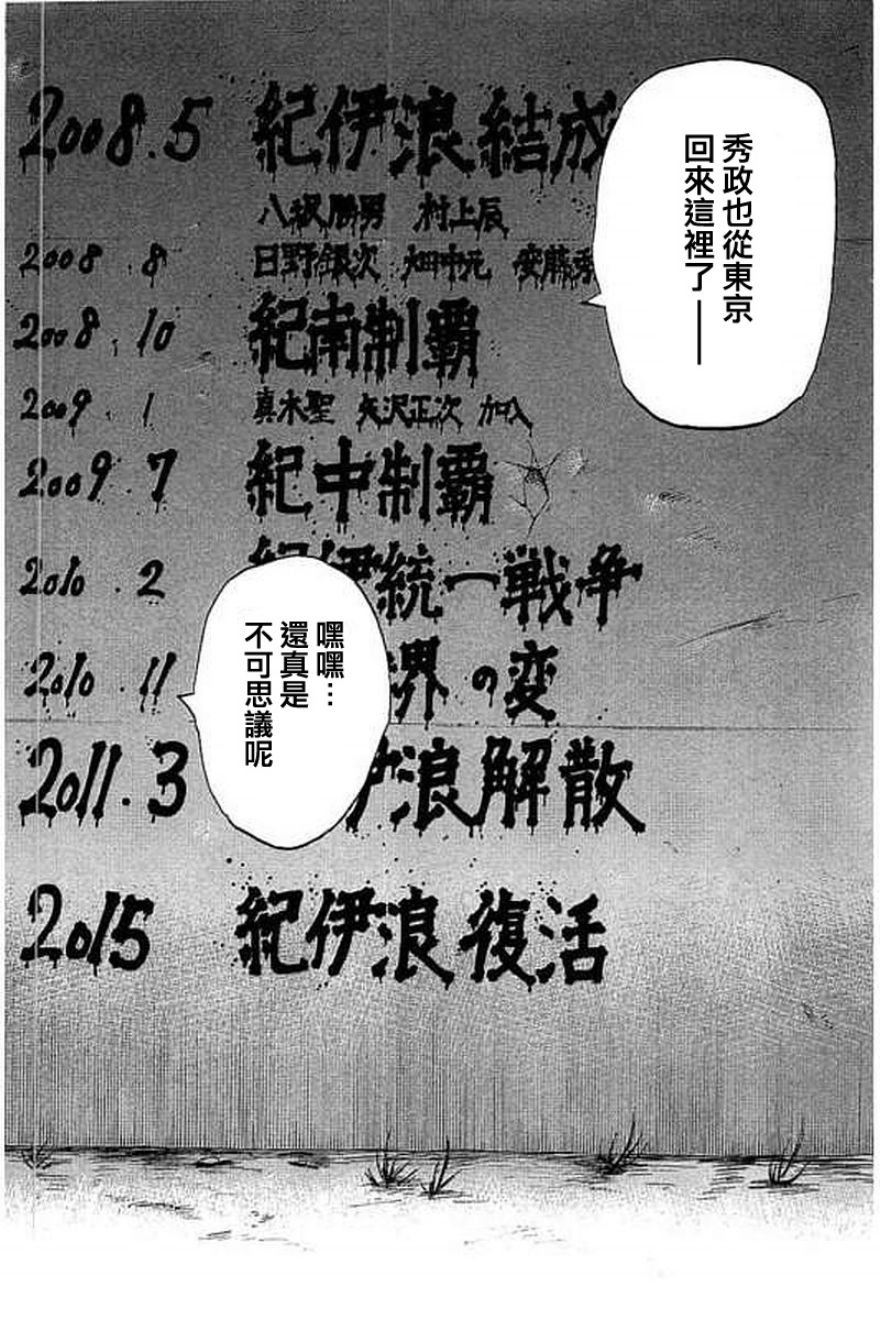 秀政也從東京
回來這裡了——
2008.5 紀伊浪結成
勝男 村上辰
2008.8 日野銀次 畑中元 安藤秀
2008.10 紀南制覇
2009.1 真木聖 矢沢正次 加入
2009.7 紀中制覇
2010.2 紀伊統一戦争
2010.11 界の変
2011.3 伊浪解散
2015 紀伊浪復活
嘿嘿…
還真是
不可思議呢